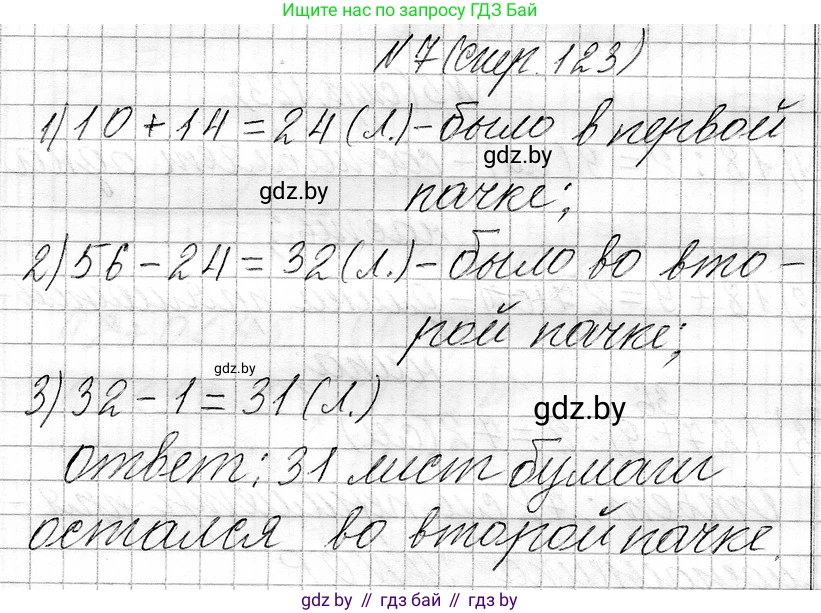 Ищите нас по запросу ГДЗ Бай
N 7 (стр. 123)
1) 10 + 14 = 24 (л.) - было в первой
gdz.by
gdz.by
пачке;
2) 56 - 24 = 32 (л.) - было во вто-
рой пачке;
gdz.by
3) 32 - 1 = 31 (л.)
gdz.by
Ответ: 31 лист бумаги
остался во второй пачке.
gdz.by // гдз бай // gdz.by